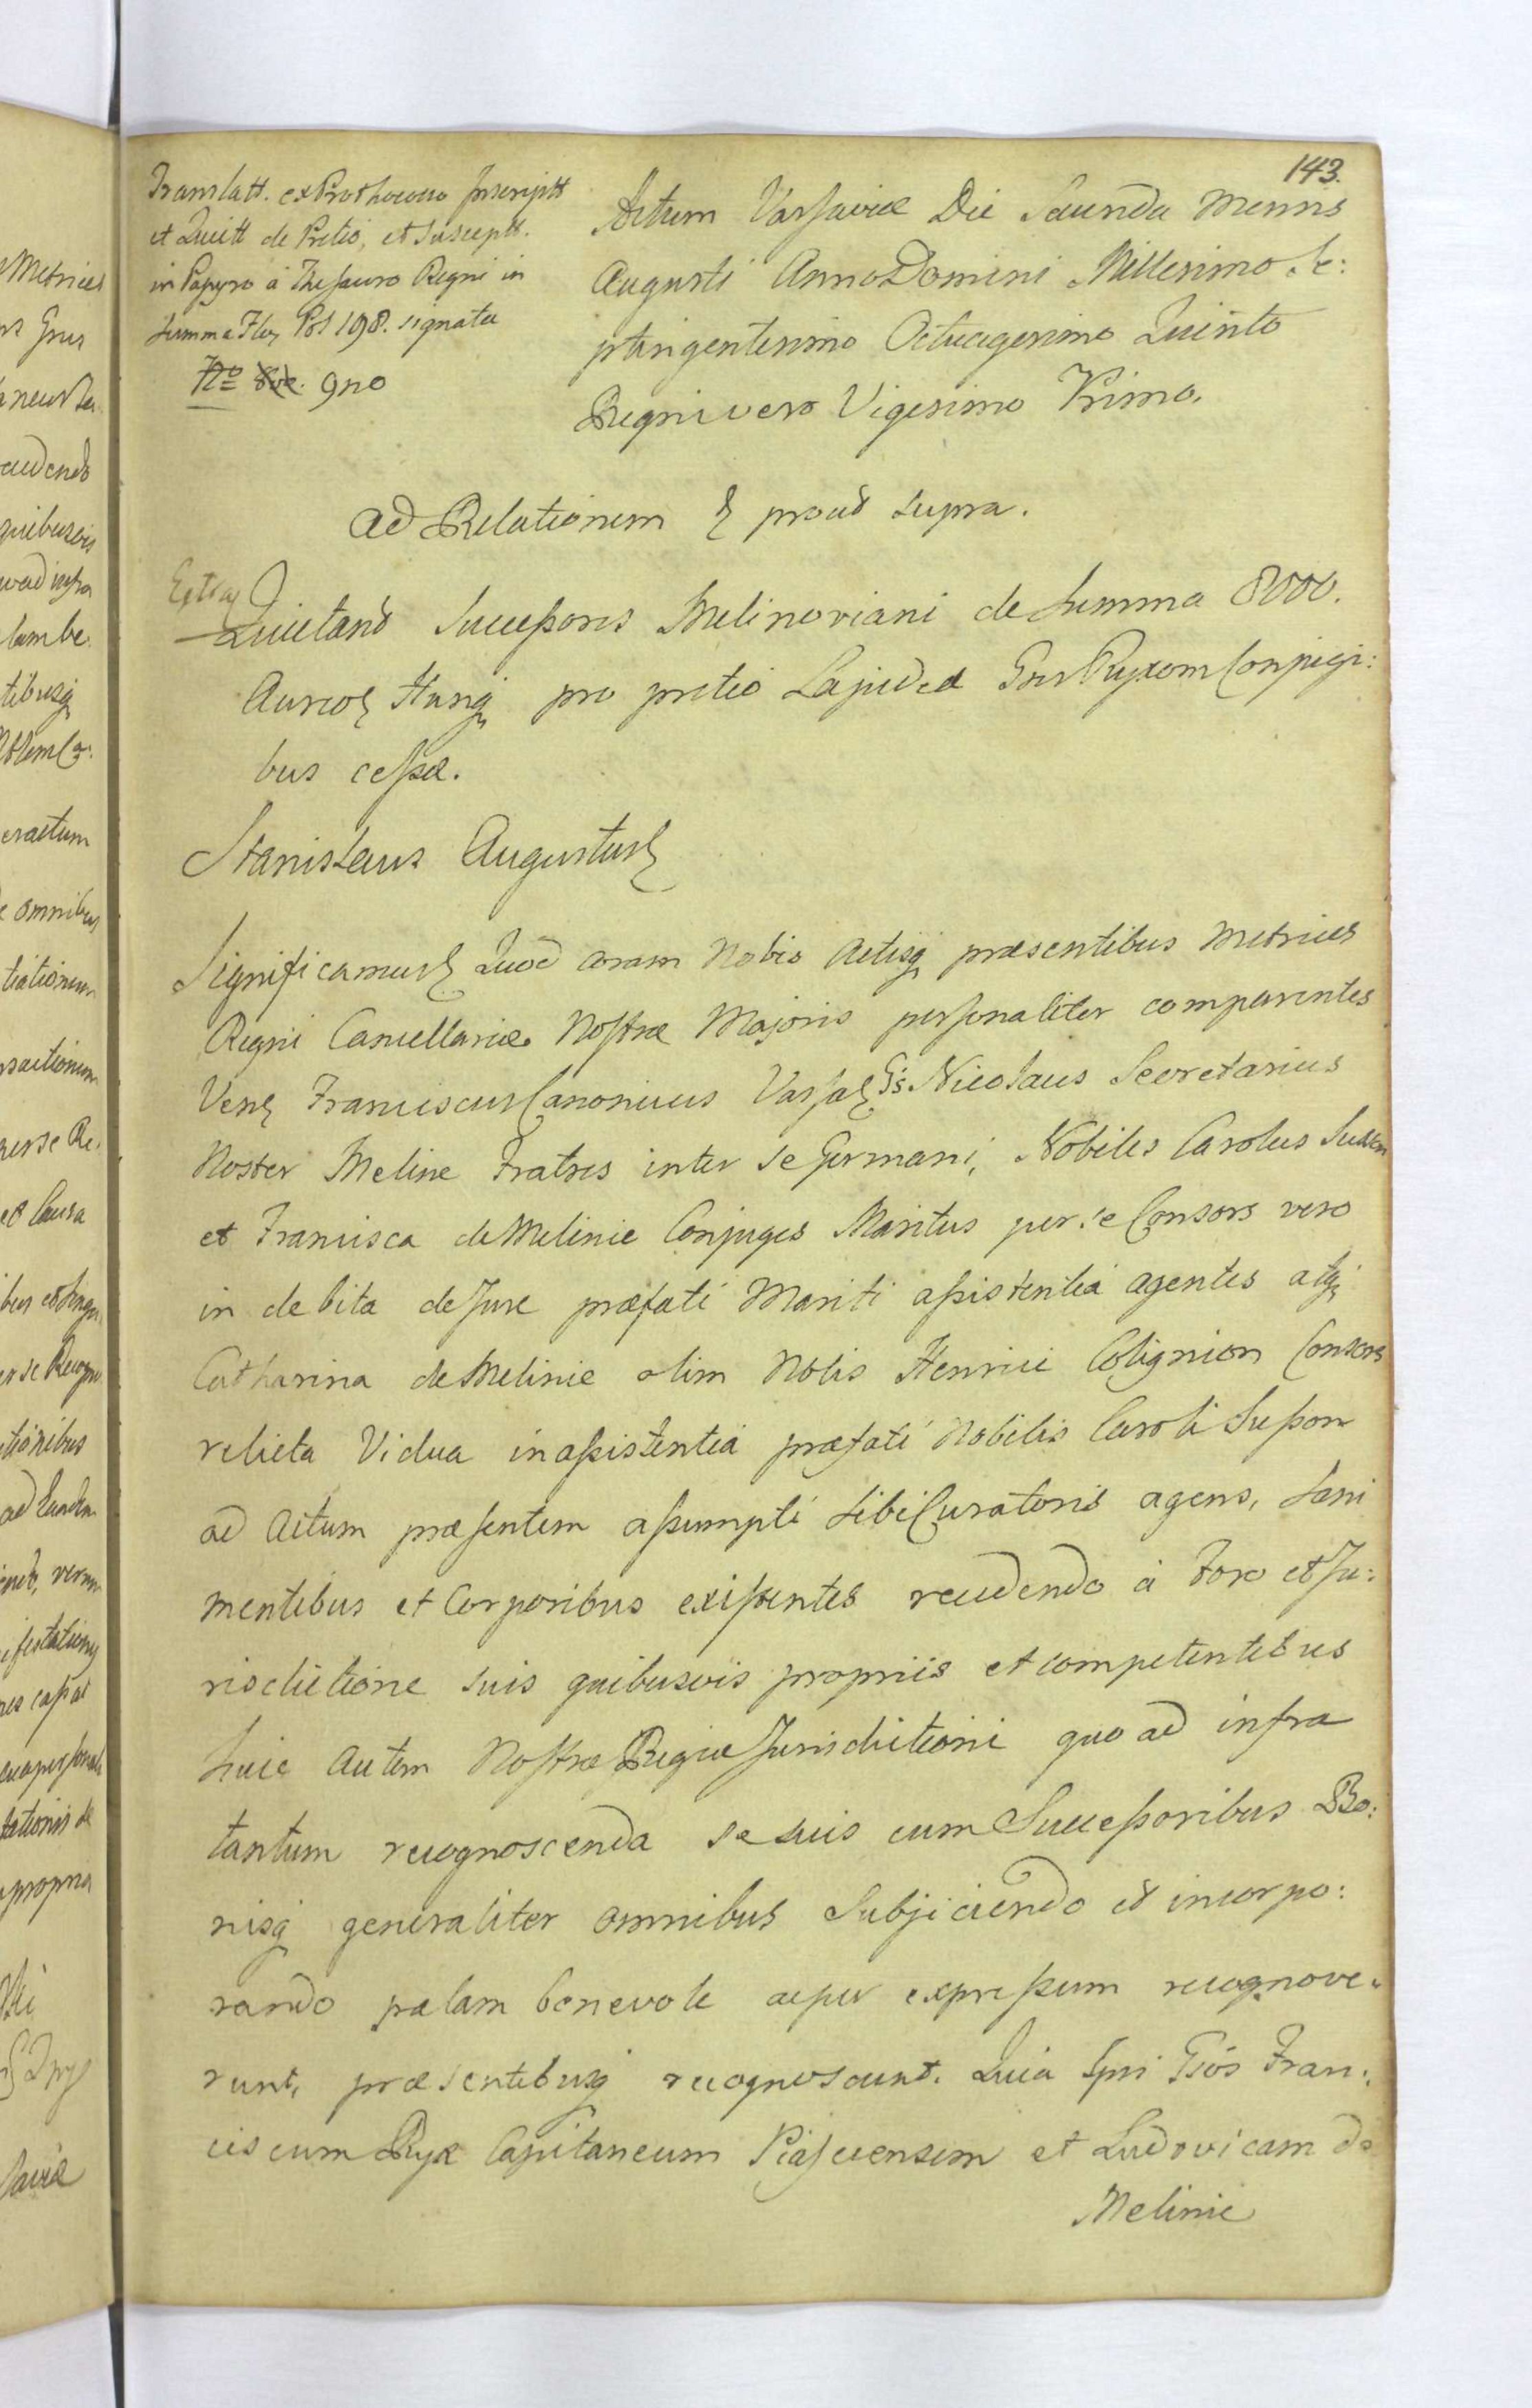 143.
Translatt. ex Prothocollo Inscriptt
et Quitt de Pretio, et suscept.
in Papyro à Thesauro Regni in
summa Flor Pol 198. signata
No 9no
Actum Varsaviæ Die Secunda Mensis
Augusti Anno Domini Millesimo Se:
ptingentesimo Octuagesimo Quinto
Regni vero Vigesimo Primo.
Ad Relationem & prout supra.
Extra
Quietand Successoris Melinoviani de Summa 8000.
Aureor Hung pro pretio Lapidea Gsis Ryxom Conjugi:
bus cessæ.
Stanislaus Augustus &
Significamus & Quod coram Nobis Actisq præsentibus Metrices
Regni Cancellariæ Nostræ Majoris personaliter comparentes
Venr Franciscus Canonicus Varsar Gs. Nicolaus Secretarius
Noster Meline Fratres inter se Germani, Nobiles Carolus
et Francisca de Melinie Conjuges Maritus per se Consors vero
in debita de Jure præfati Mariti assistentia agentes atq
Catharina de Melinie olim Nobis Henrici Colignion Consors
relicta Vidua in assistentia præfati Nobilis Caroli Susson
ad Actum præsentem assumpti sibi Curatoris agens, sani
mentibus et Corporibus existentes recedendo à Foro et Ju:
risdictione suis quibusvis propriis et competentibus
huic Autem Nostræ Regiæ Jurisdictioni quo ad infra
tantum recognoscenda se suis cum Successoribus Bo:
nisq generaliter omnibus Subjiciendo et incorpo:
rando palam benevole ac per expressum recognove:
runt, præsentibusq recognoscunt. Quia Ipsi Gsos Fran:
ciscum Ryx Capitaneum Piasecensem et Ludovicam de
Melinie
Metrices
quibusvis
tibusq
omnibus
tionibus
propria